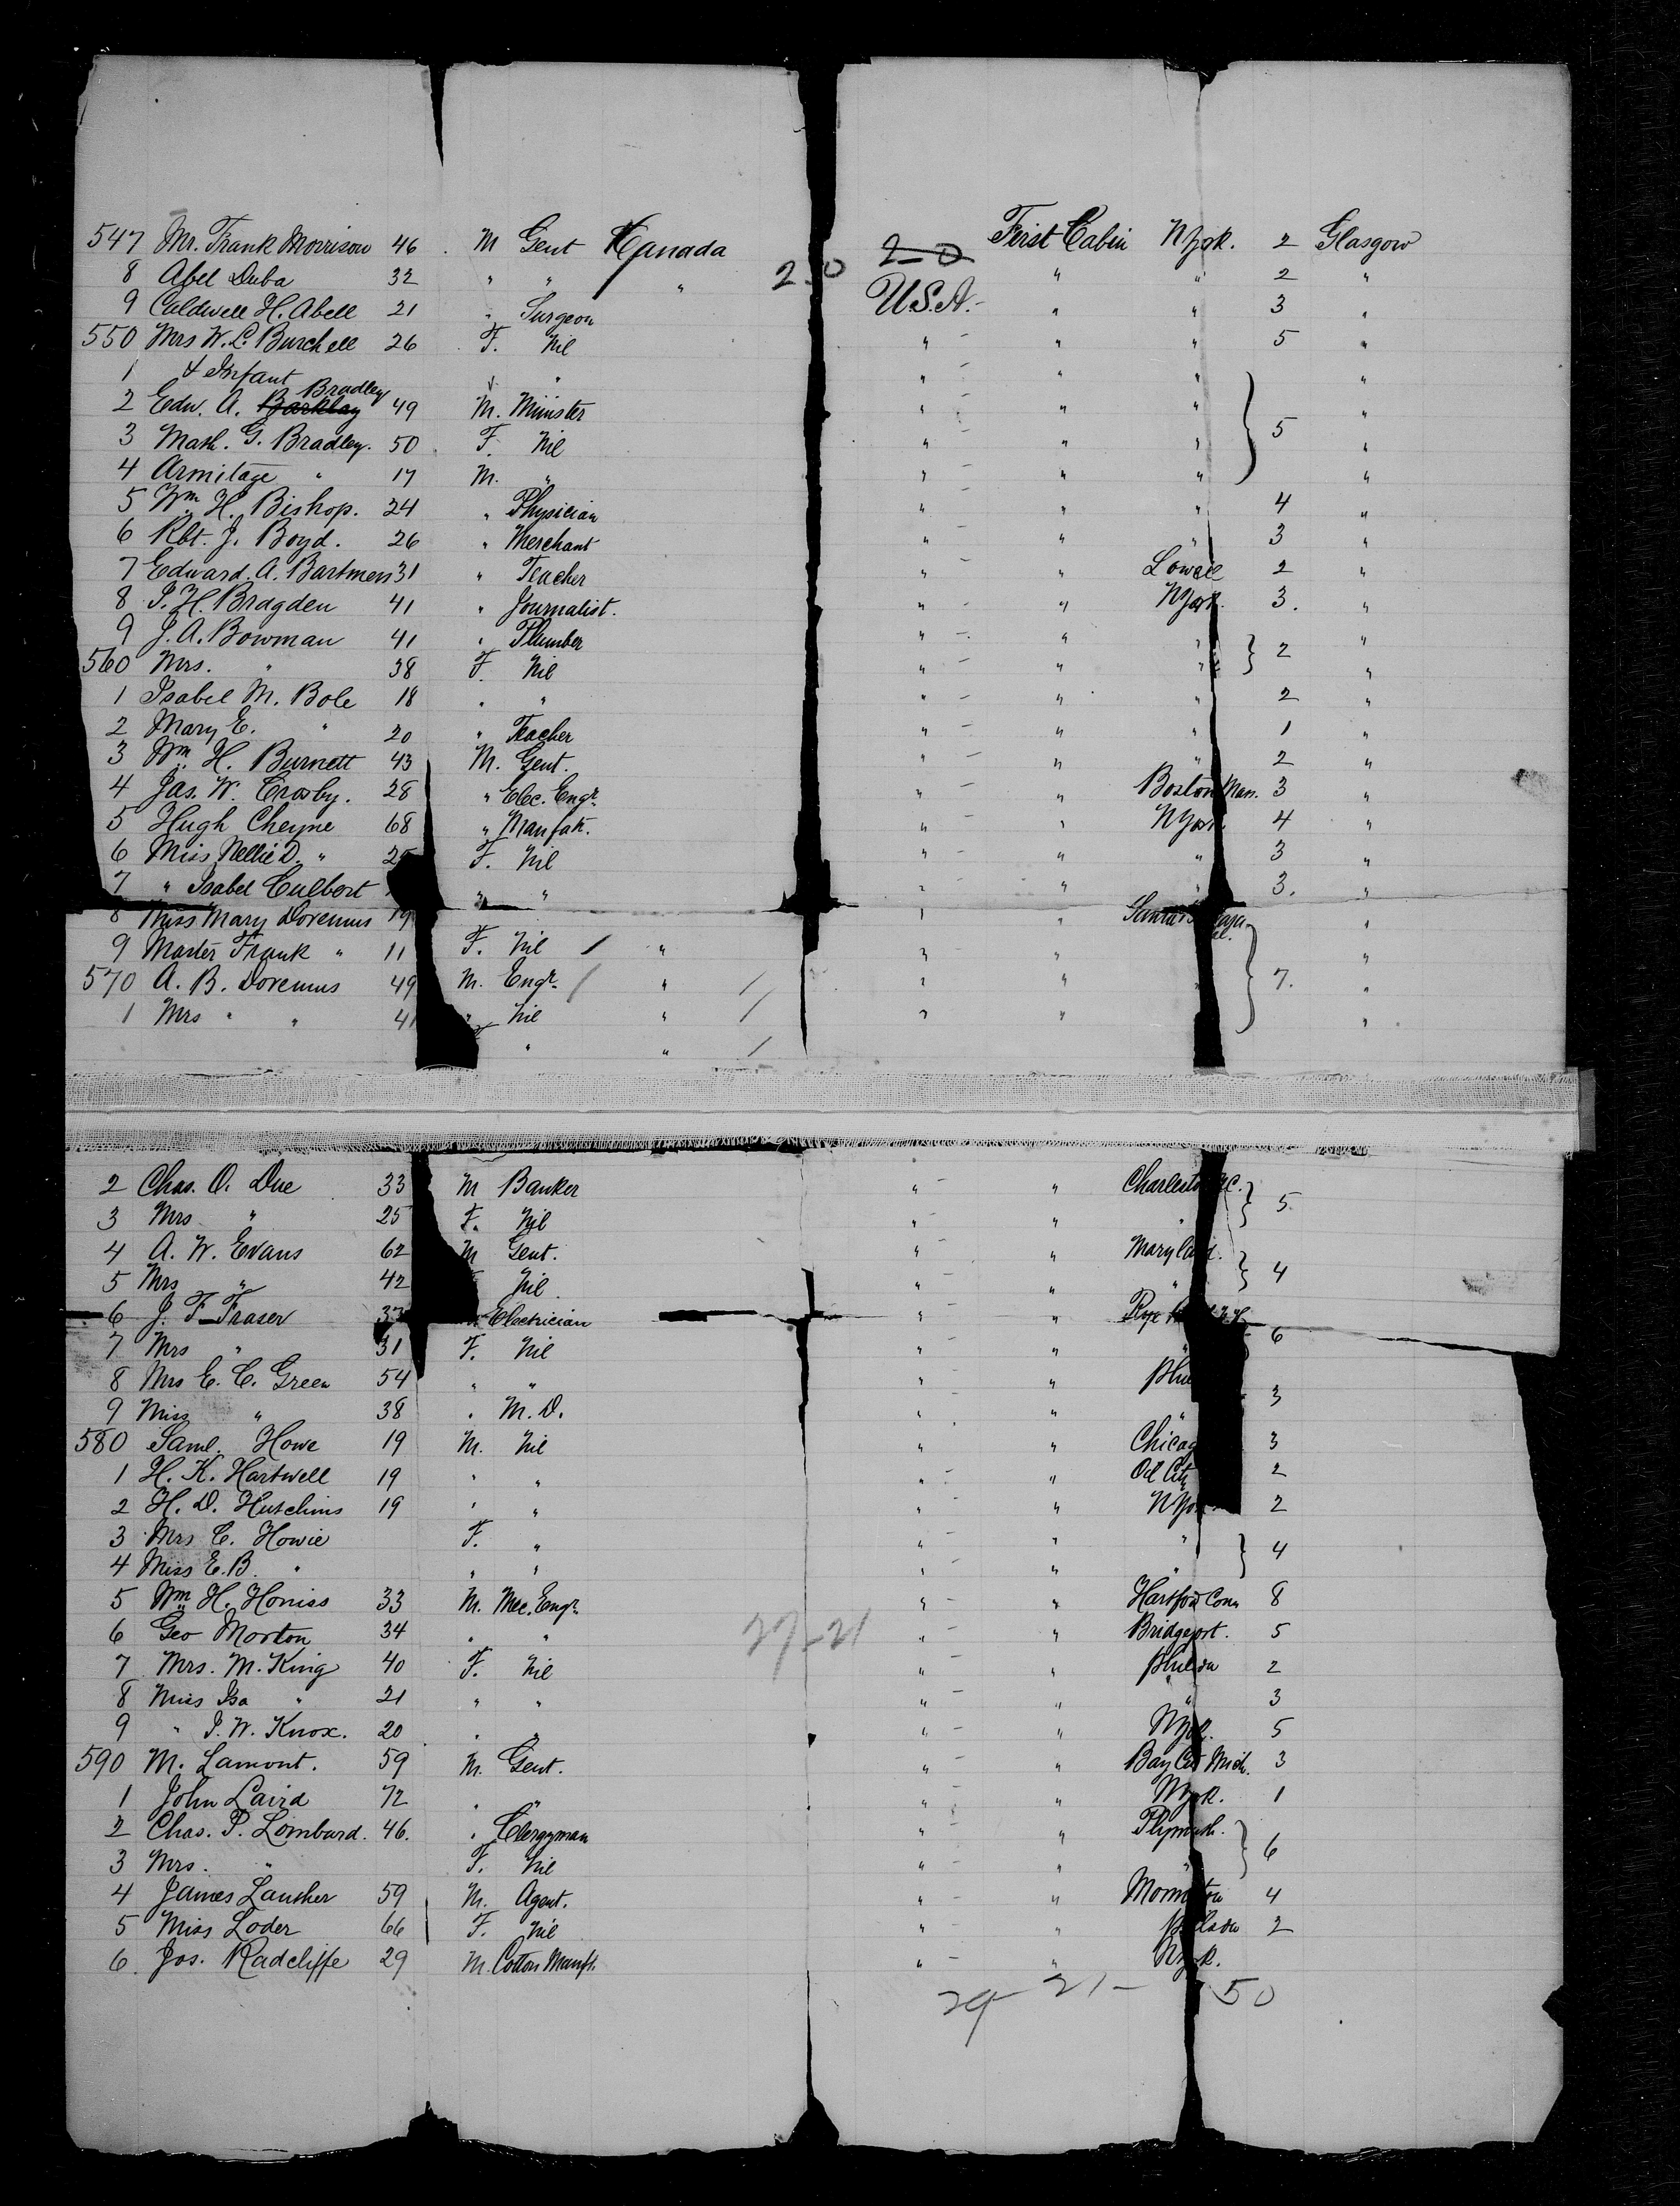 547 Mr. Frank Morrison 46 M Gent Canada 2-0 First Cabin N York. 2 Glasgow
8 Abel Duba 32 " " " 2-0 " " 2 "
9 Caldwell H. Abell 21 " Surgeon U.S.A.- " " 3 "
550 Mrs W. C. Burchell 26 F. Nil " - " " 5 "
1 & Infant " " - " " "
2 Edw. A. Barklay Bradley 49 M. Minister " - " " "
3 Math. G. Bradley. 50 F. Nil " - " " 5 "
4 Armitage " 17 M. " " - " " "
5 Wm. H. Bishop. 24 " Physician " - " " 4 "
6 Rbt. J. Boyd. 26 " Merchant " - " " 3 "
7 Edward. A. Bartmen 31 " Teacher " - " Lowell 2 "
8 S. H. Bragden 41 " Journalist. " - " N York. 3. "
9 J. A. Bowman 41 " Plumber " - " " "
560 Mrs. " 38 F. Nil " - " " 2 "
1 Isabel M. Bole 18 " " " - " " 2 "
2 Mary E. " 20 " Teacher " - " " 1 "
3 Wm. H. Burnett 43 M. Gent. " - " " 2 "
4 Jas. W. Crosby. 28 " Elec. Engr. " - " Boston Mass. 3 "
5 Hugh Cheyne 68 " Manfatr. " - " N York. 4 "
6 Miss Nellie D. " F. Nil " - " " 3 "
7 " Isabel Culbert " " " - " " 3. "
8 Miss Mary Doremus 19 " " Santa "
9 Master Frank " 11 F. Nil " " " "
570 A. B. Doremus 49 M. Engr. " " " 7. "
1 Mrs " " 41 " Nil " " " "
" "
2 Chas. O. Due 33 M Banker " - " Charleston 5
3 Mrs " 25 F. Nil " - " "
4 A. W. Evans 62 M Gent. " - " Maryland. 4
5 Mrs " 42 Nil " - " "
6 J. F. Fraser Electrician " - " Rye 6
7 Mrs " 31 F. Nil " - " "
8 Mrs E. C. Green 54 " " " - " 3
9 Miss " 38 " M.D. " - " "
580 Saml. Howe 19 M. Nil " - " Chicago 3
1 H. K. Hartwell 19 " " " - " Oil City 2
2 H. D. Hutchins 19 " " " - " N York 2
3 Mrs C. Howie F. " " - " " 4
4 Miss E.B. " " " " - " "
5 Wm H. Honiss 33 M. Mec. Engr. " - " Hartford Conn 8
6 Geo Morton 34 " " 29-21 " - " Bridgeport. 5
7 Mrs. M. King 40 F. Nil " - " 2
8 Miss Isa " 21 " " " - " " 3
9 " J. W. Knox. 20 " " " - " N York. 5
590 M. Lamont. 59 M. Gent. " - " Bay City Mich. 3
1 John Laird 72 " " " - " N York. 1
2 Chas. P. Lombard. 46. " Clergyman " - " Plymouth. 6
3 Mrs. " F. Nil " - " "
4 James Lauther 59 M. Agent. " - " 4
5 Miss Loder 66 F. Nil " - " 2
6. Jos. Radcliffe 29 M. Cotton Manft. " - " N York.
29- 21- 50